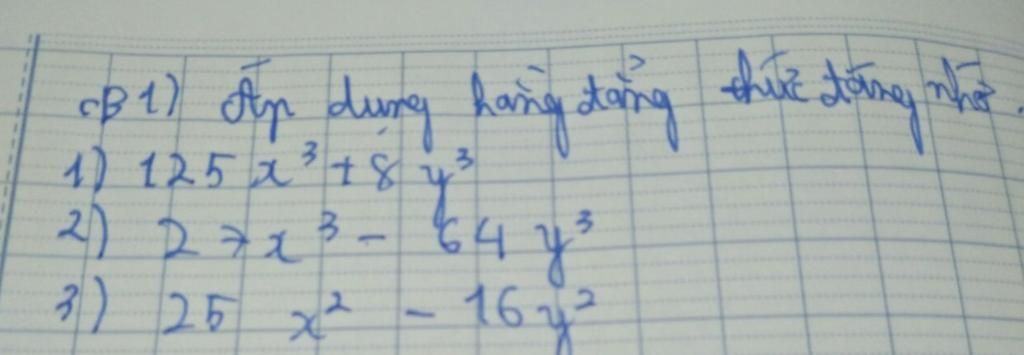 B1) Áp dụng hằng đẳng thức đáng nhớ.
1) 125 x³ + 8 y³
2) 27x³ - 64 y³
3) 25 x² - 16 y²